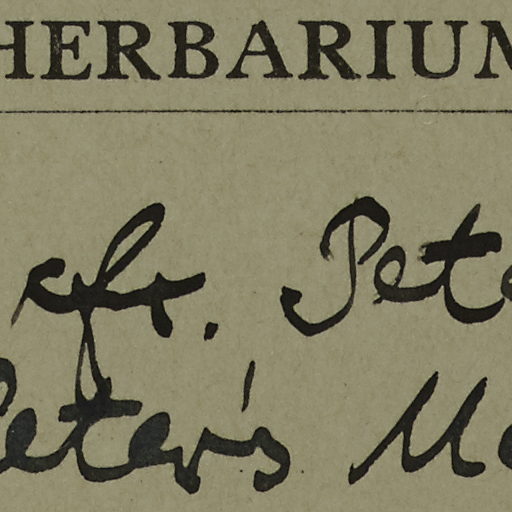 HERBARIUM
cfr. Pete
Peter's Me